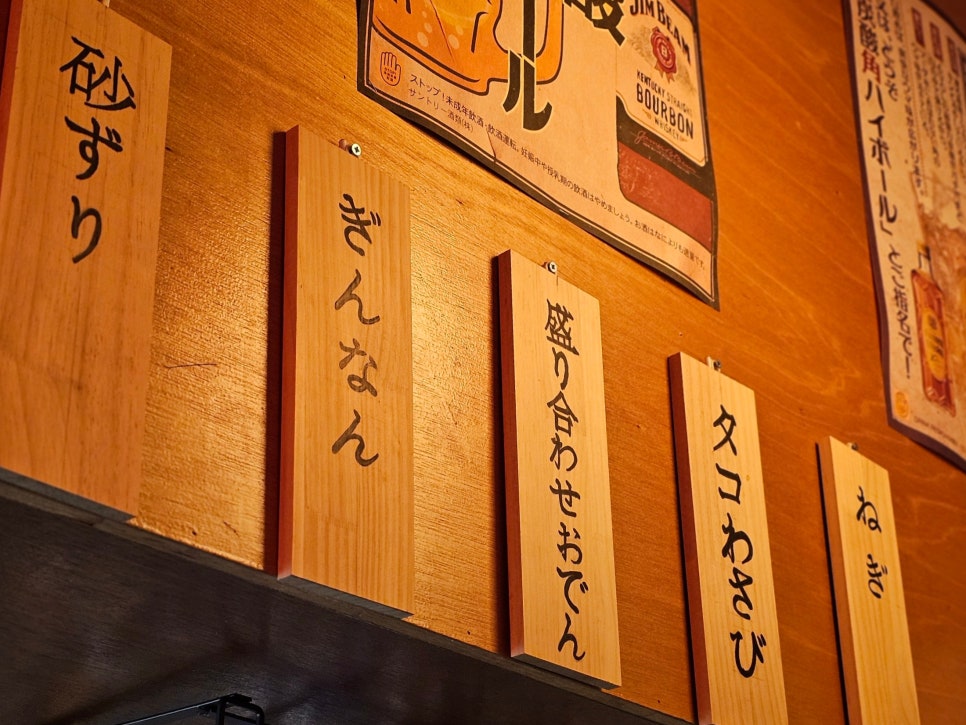 砂ずり
ぎんなん
盛り合わせおでん
タコわさび
ねぎ
ール
ストップ!未成年飲酒・飲酒運転。妊娠中や授乳期の飲酒はやめましょう。お酒はなによりも適量です。
サントリー酒類(株)
JIM BEAM
KENTUCKY STRAIGHT
BOURBON
WHISKEY
角ハイボール」とご指名で!